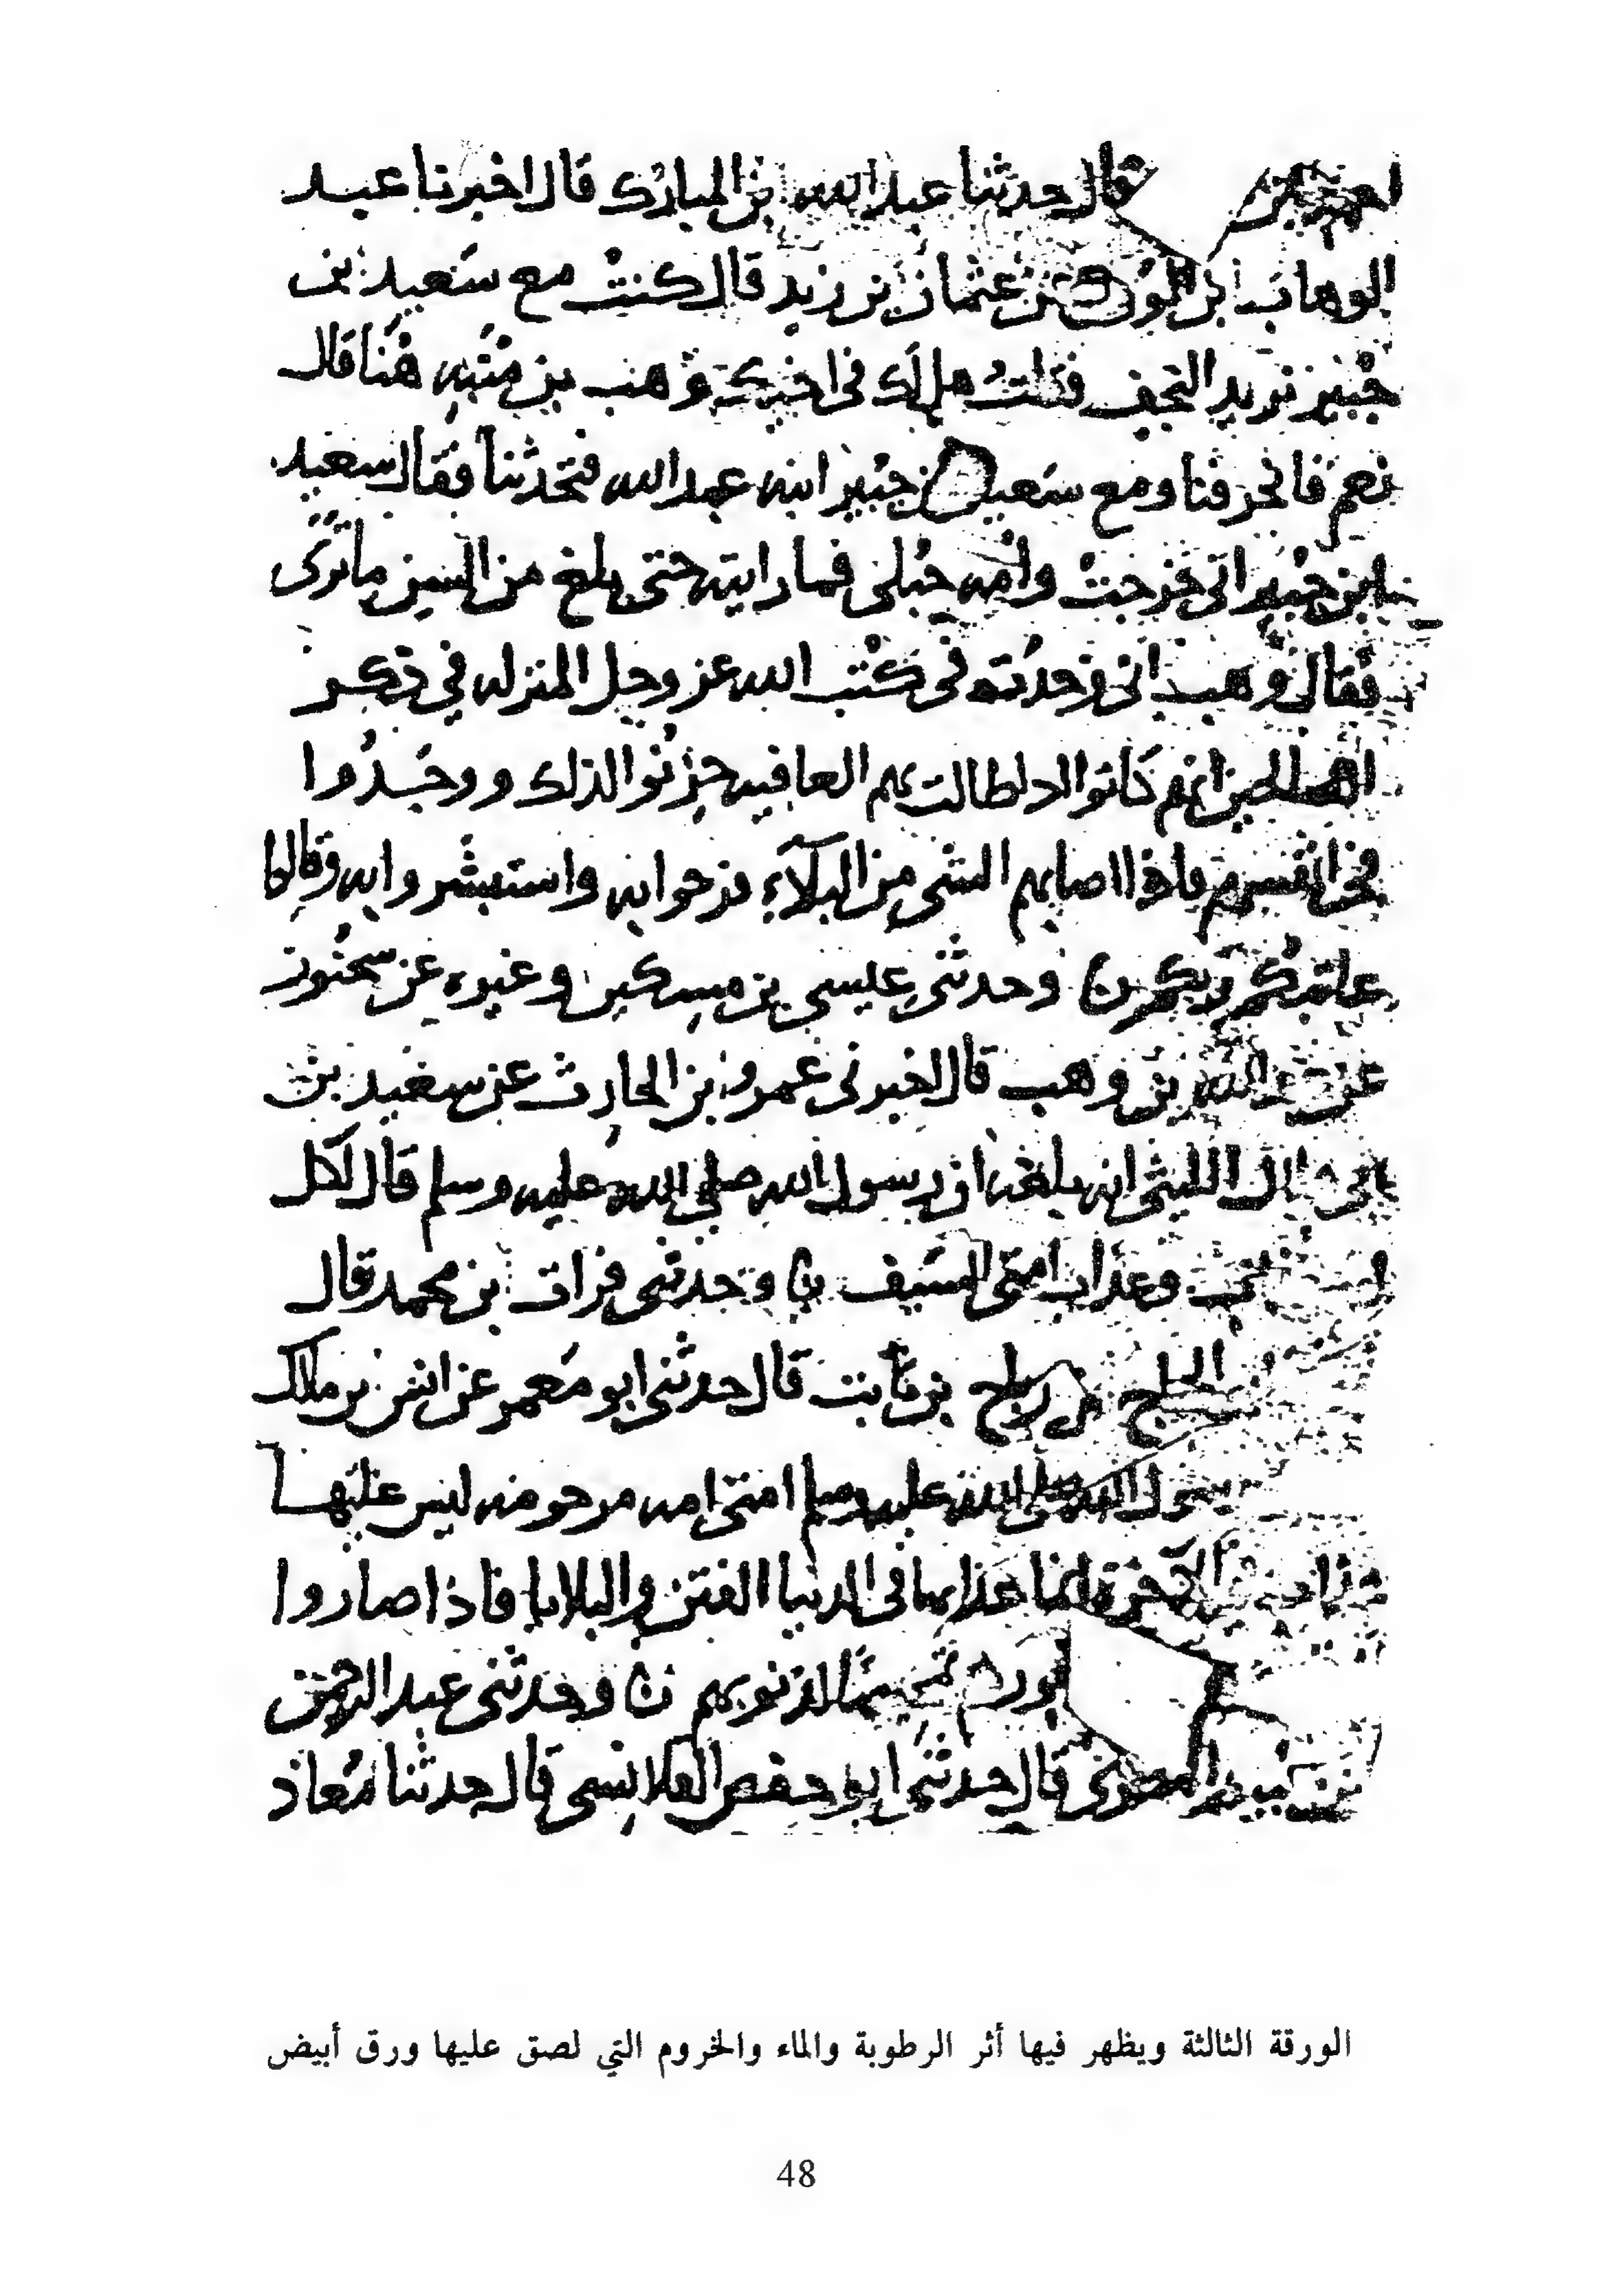 قال حدثنا عبد الله بن المبارك قال اخبرنا عبد
الوهاب بن الورد عن عثمان بن زيد قال كنت مع سعيد بن
جبير نريد فقلت هل لك في اخيك وهب بن منبه هنا قال
نعم فانحرفنا ومع سعيد بن جبير ابنه عبد الله فتحدثنا فقال سعيد
بن جبير اني خرجت وامه حبلى فما رايته حتى بلغ من السن ما ترى
فقال وهب اني وجدت في كتب الله عز وجل المنزله في ذكر
الصالحين انهم كانوا اذا طالت بهم العافيه حزنوا لذلك ووجدوا
في انفسهم فاذا اصابهم الشي من البلاء فرحوا به واستبشروا به وقالوا
ربكم وحدثني عيسى بن مسكين وغيره عن سحنون
عن عبد الله بن وهب قال اخبرني عمرو بن الحارث عن سعيد بن
ابي هلال الليثي انه بلغه ان رسول الله صلى الله عليه وسلم قال لكل
وعذاب امتي السيف وحدثني فرات بن محمد قال
بن رباح بن ثابت قال حدثني ابو معمر عن انس بن مالك
رسول الله صلى الله عليه وسلم امتي امه مرحومه ليس عليها
الآخرة انما عذابها في الدنيا الفتن والبلايا فاذا صاروا
تمحيصا لذنوبهم وحدثني عبد الرحمن
بن قال حدثني ابو حفص القلانسي قال حدثنا معاذ
الورقة الثالثة ويظهر فيها أثر الرطوبة والماء والخروم التي لصق عليها ورق أبيض
48